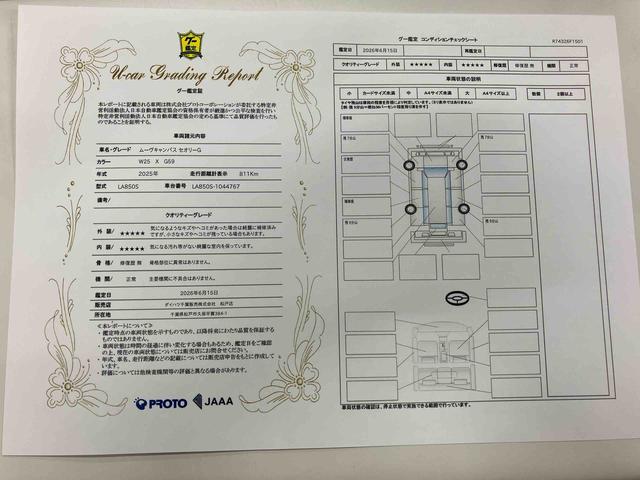 U-car Grading Report
グー鑑定証
本レポートに記載される車両は株式会社プロトコーポレーションが委託する特定非
営利活動法人日本自動車鑑定協会の資格保有者が厳選かつ公平な検査を行い
特定非営利活動法人日本自動車鑑定協会の定める基準にて品質評価を行ったも
のであることを証明する。
車両諸元内容
車名・グレード ムーヴキャンバス セオリーG
カラー W25 X G59
年式 2025年 走行距離計表示 811Km
型式 LA850S 車台番号 LA850S-1044767
備考/
クオリティーグレード
外装/ ★★★★★ 気になるようなキズやヘコミがあった場合は綺麗に補修済み
ですが、小さなキズやヘコミが残っている場合もあります。
内装/ ★★★★★ 気になる汚れ等がない綺麗な室内を保っています。
骨格/ 修復歴 無 骨格部位に異常はありません。
機関/ 正常 主要機関に不具合はありません。
鑑定日 2026年6月15日
販売店 ダイハツ千葉販売株式会社 松戸店
所在地 千葉県松戸市久保平賀384-1
≪本レポートについて≫
・鑑定時点の車両状態を示すものであり、以降将来にわたり品質を保証する
ものではありません。
・車両状態は時間の経過に伴い変化する場合もあるため、鑑定日をご確認
の上、現在の車両状態については販売店にお問合せください。
・年式、車名、走行距離などの記載については販売店申告をもとに作成して
います。
・評価については他検査機関等の評価と異なる場合があります。
PROTO JAAA
グー鑑定 コンディションチェックシート R74326F1501
鑑定日 2026年6月15日 再鑑定日
クオリティーグレード 外装 ★★★★★ 内装 ★★★★★ 修復歴 修復歴 無 機関 正常
車両状態の説明
小 カードサイズ未満 中 A4サイズ未満 大 A4サイズ以上 複数 2個以上
残 7分山
残 7分山
残 8分山
残 8分山
車両状態の確認は、停止状態で実施できる範囲で行っています。